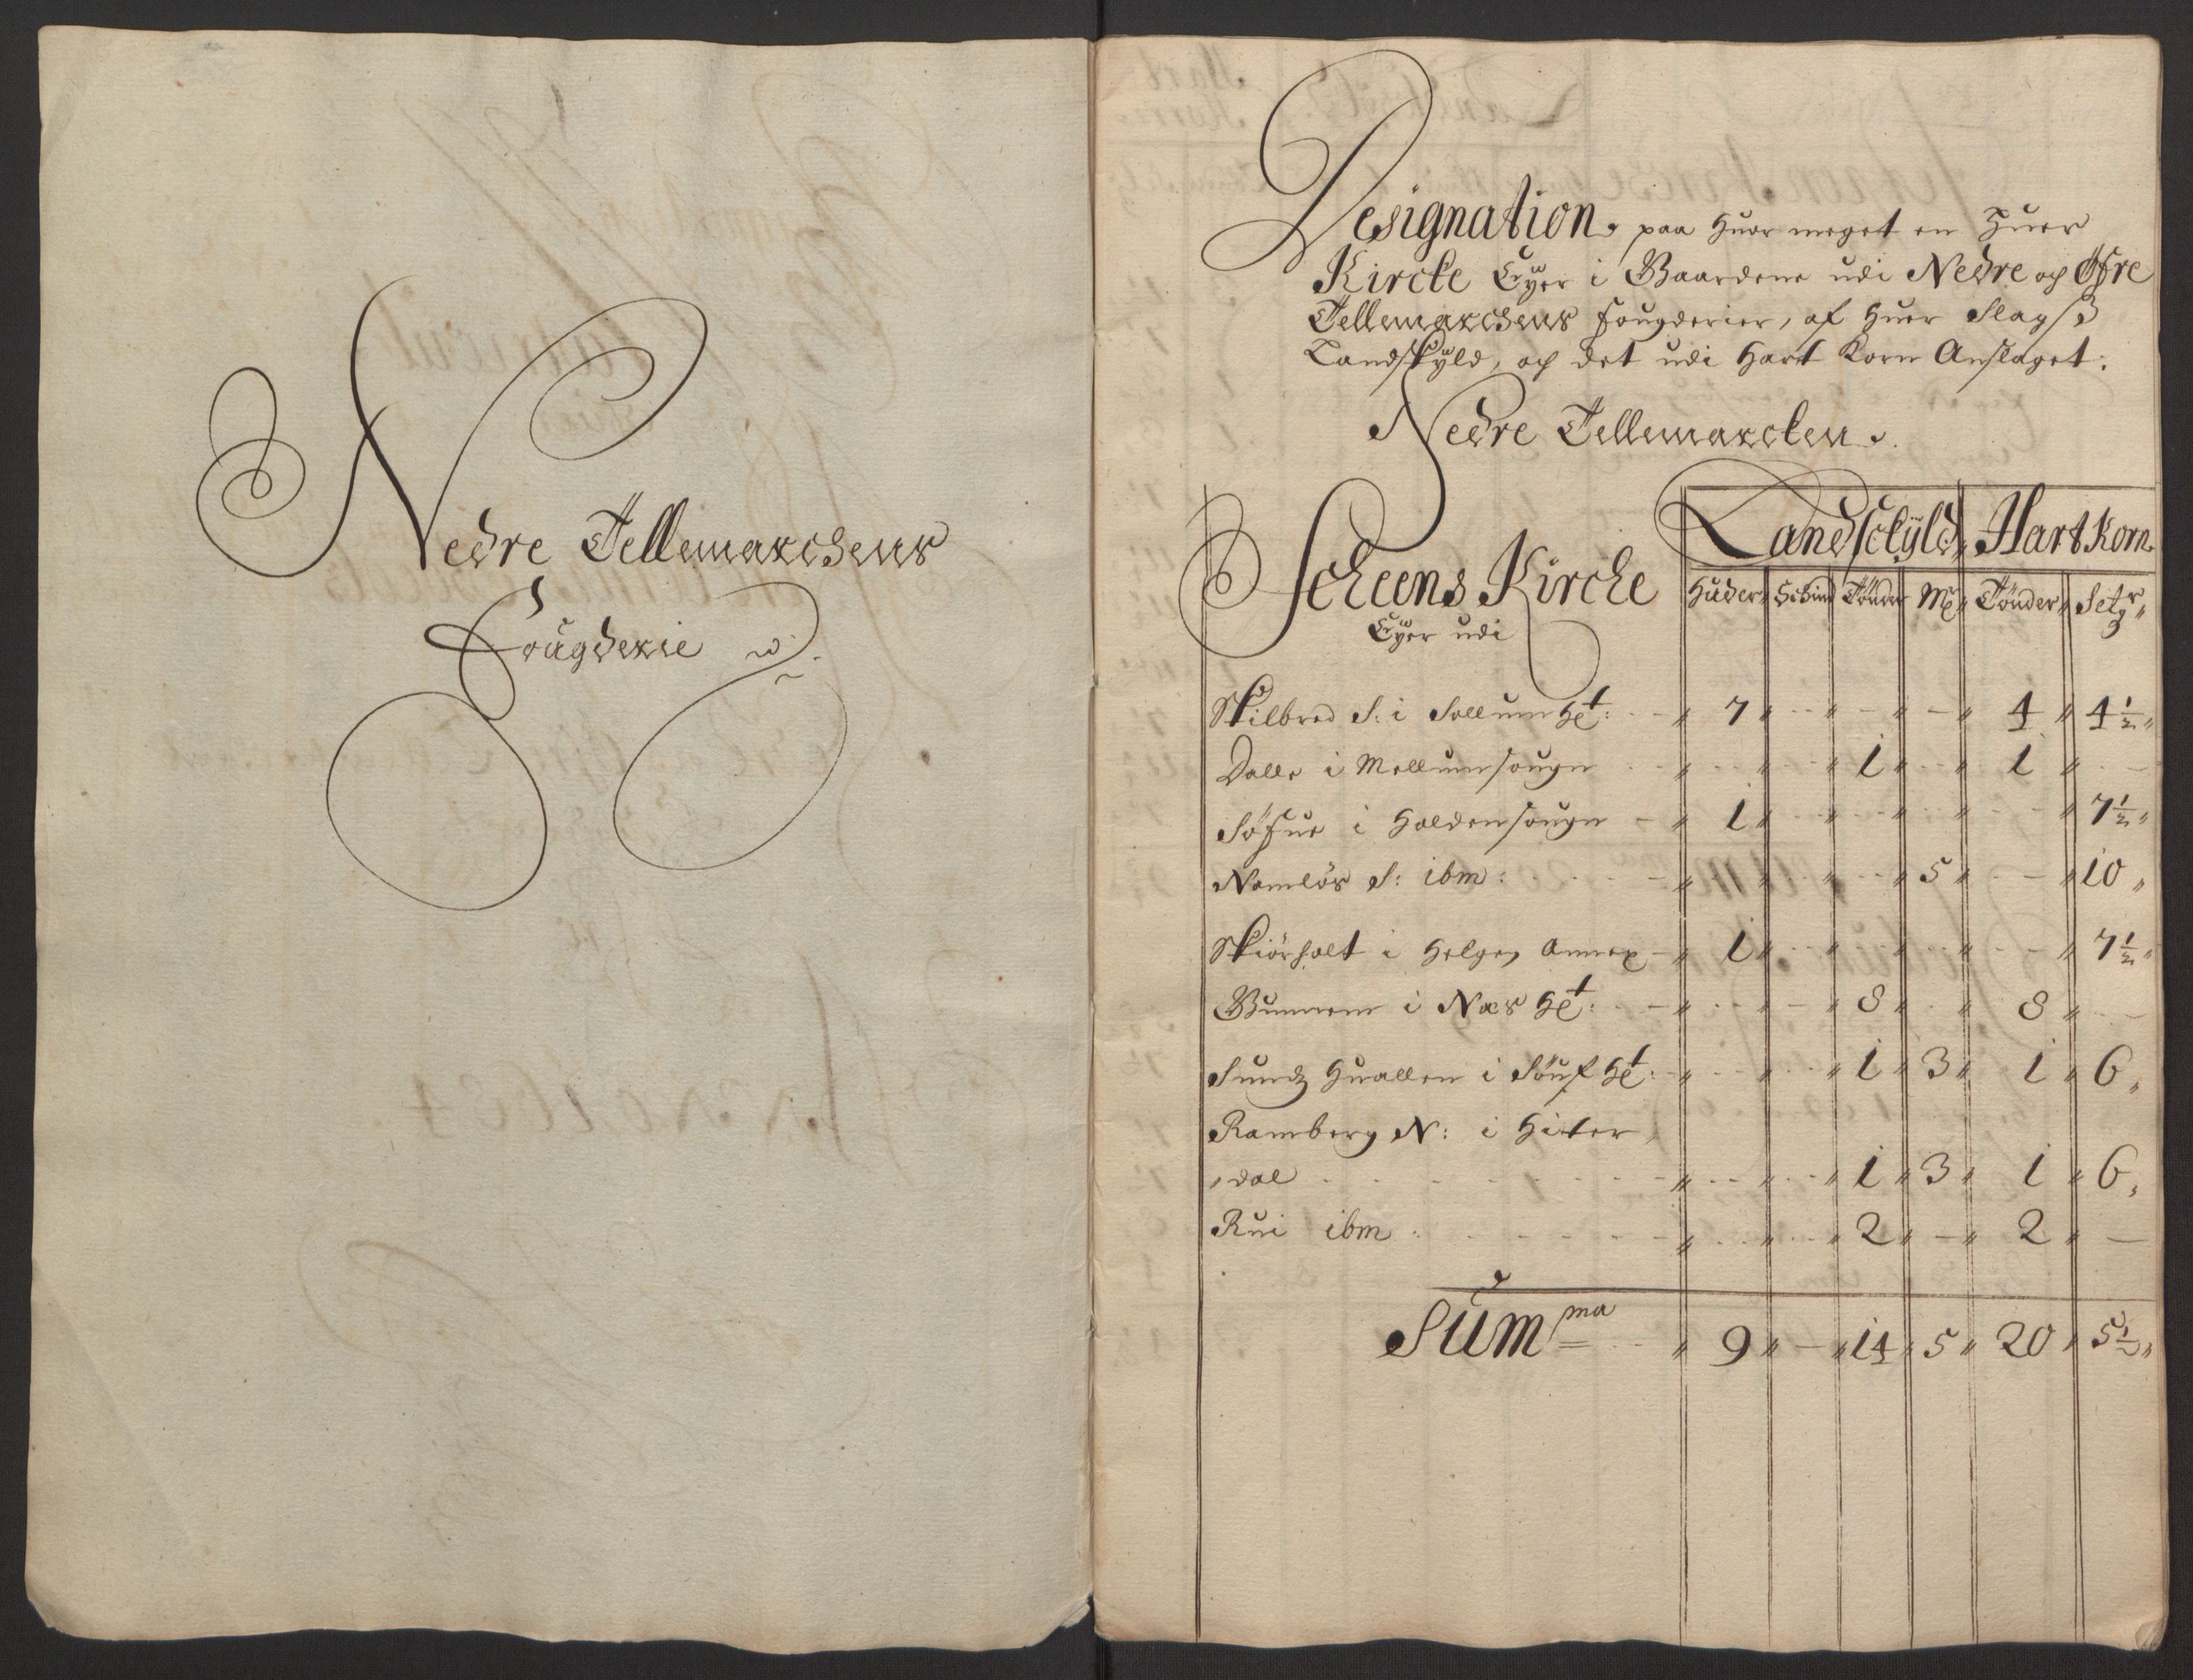 Nedre Tellemarchens
Fougderie
Designation, paa huor meget en huer
Kircke Eyer i Gaardene udi Nedre og Øfre
Tellemarchens fougderier, af huer Slags
Landskyld, og det udi Hart Korn Anslaget.
Nedre Tellemarcken.
Scheens Kirche
Eyer udi
Landschyld, Hart Korn.
Huder, Schind Tønder Mk Tønder, Setgr,
Skilbred S: i Sollum Ht: 7 4 4 1/2
Dalle i Mellumsougn 1 1
Søfue i Holdensougn 1 7 1/2
Nomløs S: ibm: 5 10
Skiørholt i Helgen Annex 1 7 1/2
Gunnem i Næs Ht: 8 8
Sundz Huallen i Søuf Ht: 1 3 1 6
Ramberg N: i Hitter
dal 1 3 1 6
Rui ibm: 2 2
Summa 9 14 5 20 5 1/2